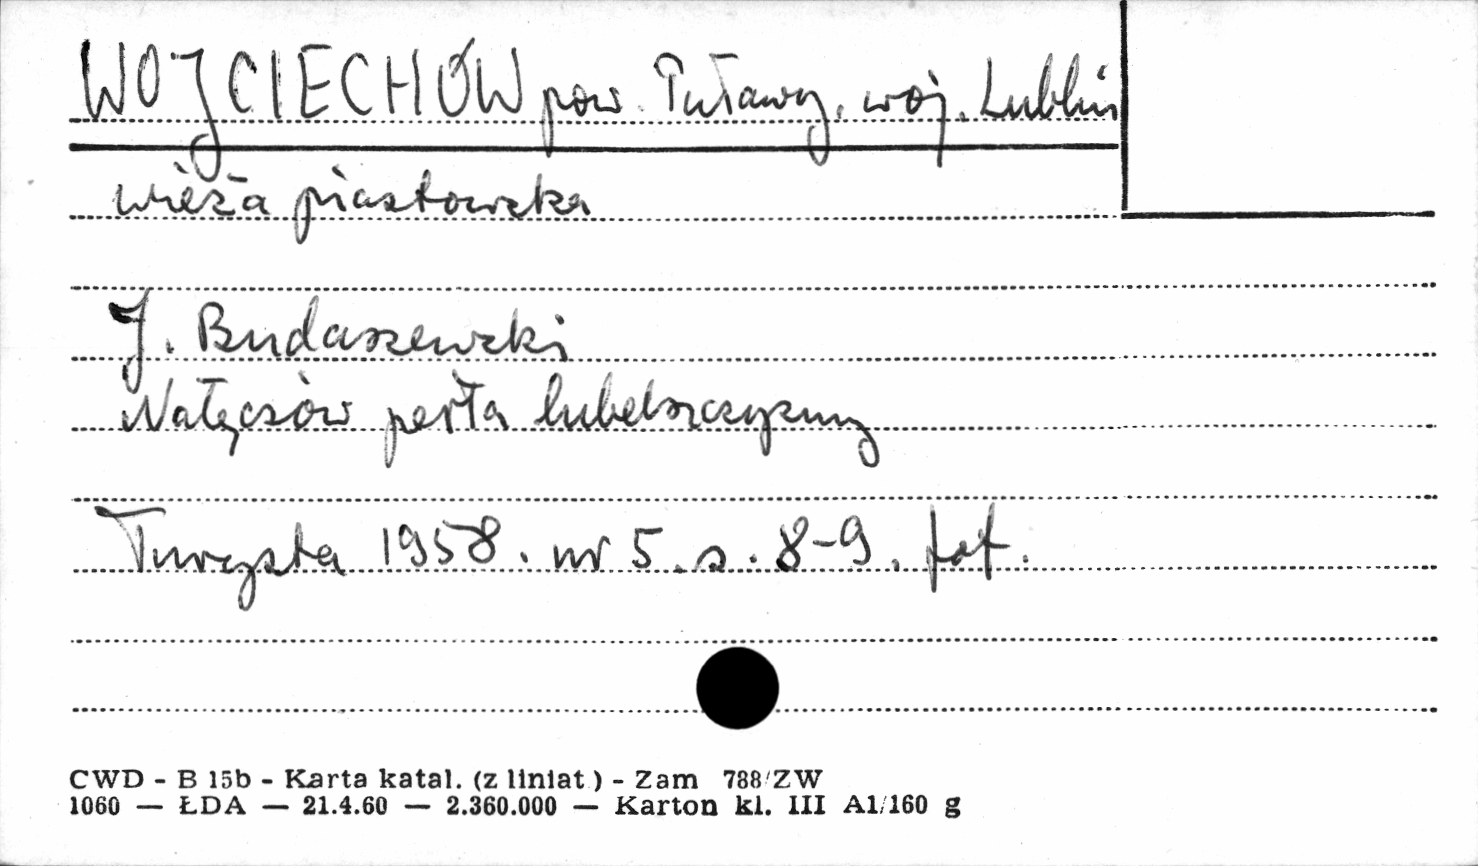 WOJCIECHÓW pow. Puławy, woj. Lublin
wieża piastowska
J. Budaszewski
Nałęczów perła lubelszczyzny
Turysta 1958. nr 5. s. 8-9. fot.
CWD - B 15b - Karta katal. (z liniat.) - Zam 788/ZW
1060 — ŁDA — 21.4.60 — 2.360.000 — Karton kl. III A1/160 g